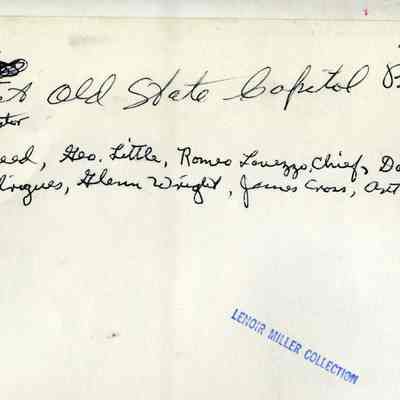 Old State Capitol
Geo. Little, Romeo Lovezzo, Chief,
Glenn Wright, James Cross,
LENOIR MILLER COLLECTION